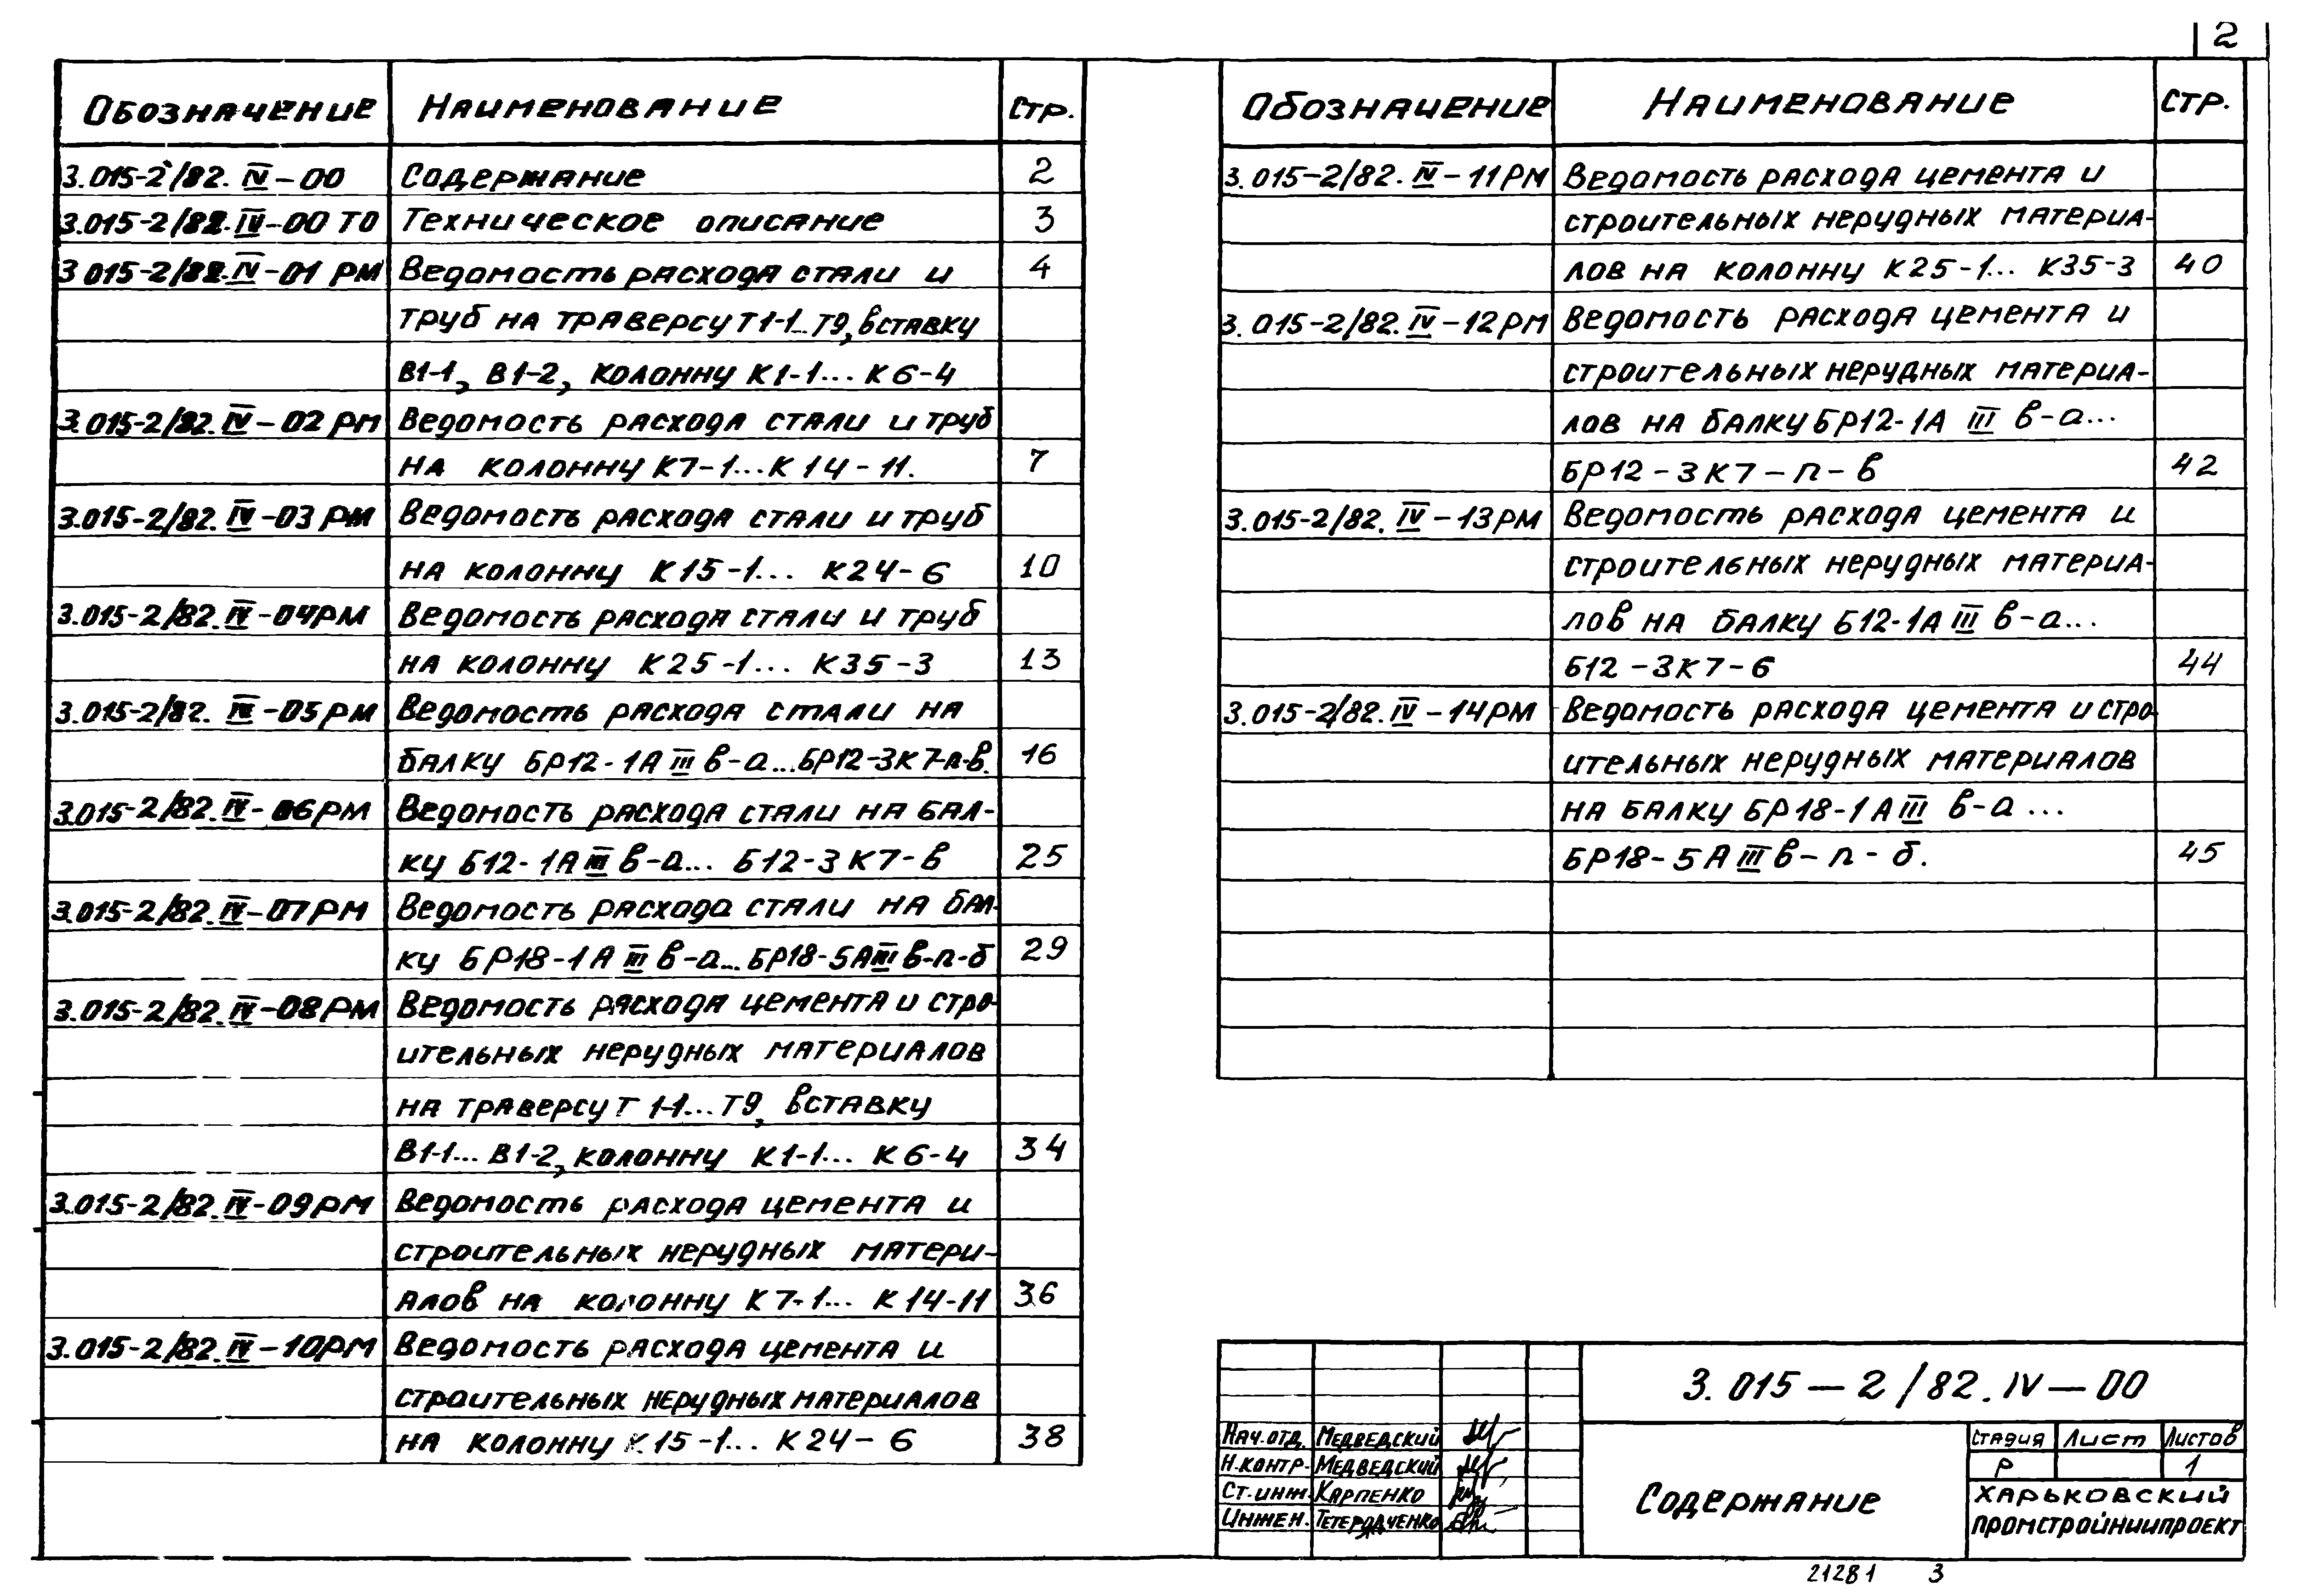 2
Обозначение Наименование Стр.
3.015-2/82.IV-00 Содержание 2
3.015-2/82.IV-00 ТО Техническое описание 3
3.015-2/82.IV-01 РМ Ведомость расхода стали и 4
труб на траверсу Т1-1...Т9, вставку
В1-1, В1-2, колонну К1-1... К6-4
3.015-2/82.IV-02 РМ Ведомость расхода стали и труб
на колонну К7-1...К14-11. 7
3.015-2/82.IV-03 РМ Ведомость расхода стали и труб
на колонну К15-1... К24-6 10
3.015-2/82.IV-04РМ Ведомость расхода стали и труб
на колонну К25-1... К35-3 13
3.015-2/82.IV-05РМ Ведомость расхода стали на
балку БР12-1АIIIв-а...БР12-3К7-п-в. 16
3.015-2/82.IV-06РМ Ведомость расхода стали на бал-
ку Б12-1АIIIв-а... Б12-3К7-в 25
3.015-2/82.IV-07РМ Ведомость расхода стали на бал-
ку БР18-1АIIIв-а...БР18-5АIIIв-п-б 29
3.015-2/82.IV-08РМ Ведомость расхода цемента и стро-
ительных нерудных материалов
на траверсу Т1-1...Т9, вставку
В1-1... В1-2, колонну К1-1... К6-4 34
3.015-2/82.IV-09РМ Ведомость расхода цемента и
строительных нерудных матери-
алов на колонну К7-1... К14-11 36
3.015-2/82.IV-10РМ Ведомость расхода цемента и
строительных нерудных материалов
на колонну К15-1... К24-6 38
Обозначение Наименование Стр.
3.015-2/82.IV-11РМ Ведомость расхода цемента и
строительных нерудных материа-
лов на колонну К25-1... К35-3 40
3.015-2/82.IV-12РМ Ведомость расхода цемента и
строительных нерудных материа-
лов на балку БР12-1АIIIв-а...
БР12-3К7-п-в 42
3.015-2/82.IV-13РМ Ведомость расхода цемента и
строительных нерудных материа-
лов на балку Б12-1АIIIв-а...
Б12-3К7-б 44
3.015-2/82.IV-14РМ Ведомость расхода цемента и стро-
ительных нерудных материалов
на балку БР18-1АIIIв-а...
БР18-5АIIIв-п-б. 45
3.015-2/82.IV-00
Нач.отд. Медведский
Н.контр. Медведский
Ст.инж. Карпенко
Инжен. Тетерядченко
Содержание
Стадия Лист Листов
Р 1
Харьковский
Промстройниипроект
21281 3